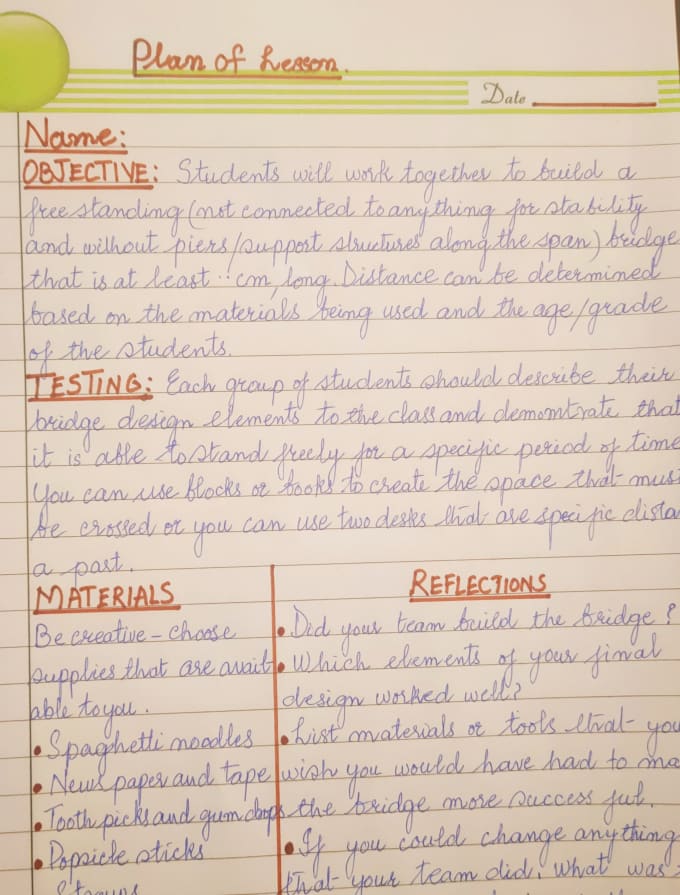 Plan of Lesson.
Date
Name:
OBJECTIVE: Students will work together to build a
free standing (not connected to anything for stability
and without piers/support structures along the span) bridge
that is at least .. cm, long. Distance can be determined
based on the materials being used and the age/grade
of the students.
TESTING: Each group of students should describe their
bridge design elements to the class and demomtrate that
it is able to stand freely for a specific period of time
You can use blocks or books to create the space that mus
be crossed or you can use two desks that are specific dista
a part.
MATERIALS
Be creative - choose
supplies that are avail
able to you.
• Spaghetti noodles
• News paper and tape
• Tooth picks and gum drops
• Popsicle sticks
REFLECTIONS
• Did your team build the bridge?
• Which elements of your final
design worked well?
• List materials or tools that you
wish you would have had to ma
the bridge more success ful.
• If you could change anything
that your team did, what was